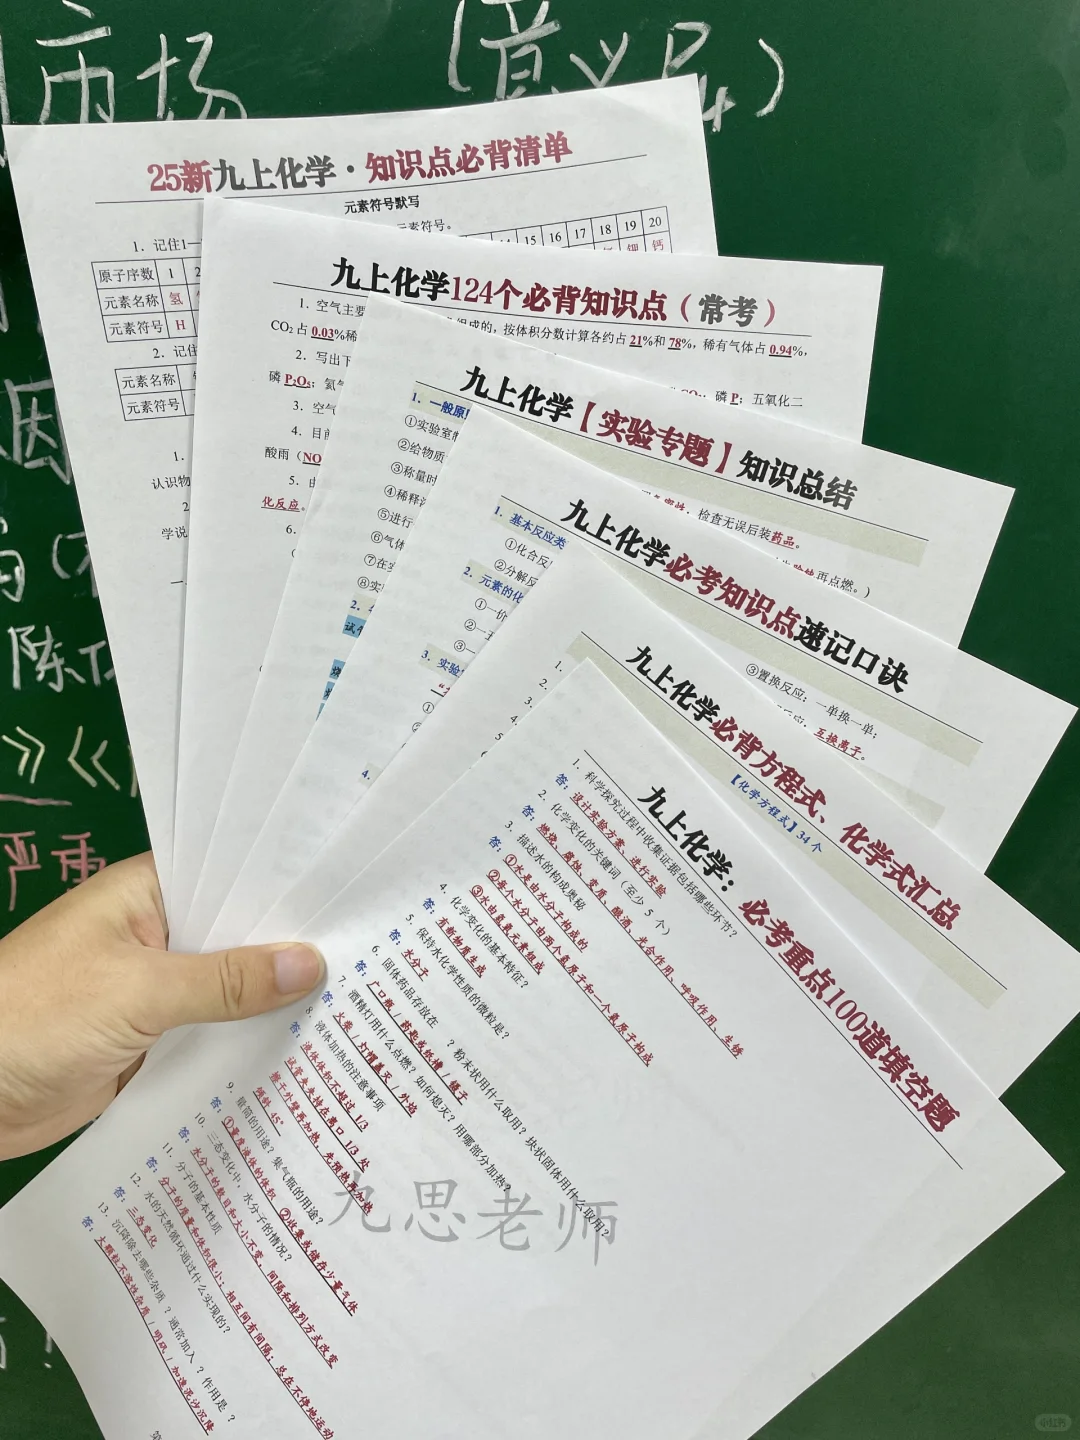 市场
(意义P4)
因
陈
》《
严重
25新九上化学·知识点必背清单
元素符号默写
1. 记住1—
元素符号。
原子序数 1 2 14 15 16 17 18 19 20
元素名称 氢 钾 钙
元素符号 H
2. 记住
元素名称
元素符号
1.
认识物
2
学说
九上化学124个必背知识点（常考）
1. 空气主要 组成的，按体积分数计算各约占21%和78%，稀有气体占0.94%，
CO₂占0.03%稀
2. 写出下 磷P；五氧化二
磷P₂O₅；氦气
3. 空气
4. 目前
酸雨（NO
5. 由
化反应。
6.
九上化学【实验专题】知识总结
1. 一般原
①实验室制
②给物质 检查无误后装药品。
③称量时 再点燃。）
④稀释浓
⑤进行
⑥气体
⑦在实
⑧实
2.
九上化学必考知识点速记口诀
1. 基本反应类
①化合反 ③置换反应：一单换一单；
②分解反 互换离子。
2. 元素的化
①一价
②一
③一
3. 实验
①
4.
九上化学必背方程式、化学式汇总
【化学方程式】34个
1.
2.
3.
4.
5
九上化学：必考重点100道填空题
1. 科学探究过程中收集证据包括哪些环节？
答：设计实验方案、进行实验
2. 化学变化的关键词（至少 5 个）
答：燃烧、腐蚀、变质、酿酒、光合作用、呼吸作用、生锈
3. 描述水的构成奥秘
答：①水是由水分子构成的
②每个水分子由两个氢原子和一个氧原子构成
③水由氢氧元素组成
4. 化学变化的基本特征？
答：有新物质生成
5. 保持水化学性质的微粒是？
答：水分子
6. 固体药品存放在 ？粉末状用什么取用？块状固体用什么取用？
答：广口瓶 / 药匙或纸槽 / 镊子
7. 酒精灯用什么点燃？如何熄灭？用哪部分加热？
答：火柴 / 灯帽盖灭 / 外焰
8. 液体加热的注意事项
答：液体体积不超过 1/3
试管夹夹持在离口 1/3 处
擦干外壁再加热，先预热再加热
倾斜 45°
9. 量筒的用途？集气瓶的用途？
答：①量度液体的体积 ②收集或储存少量气体
10. 三态变化中，水分子的情况？
答：水分子的数目和大小不变，间隔和排列方式改变
11. 分子的基本性质
答：分子的质量和体积很小；相互间有间隔；总在不停地运动
12. 水的天然循环通过什么实现的？
答：三态变化
13. 沉降除去哪些杂质 ？通常加入 ？作用是 ？
答：大颗粒不溶性杂质 / 明矾 / 加速泥沙沉降
九思老师
小红书